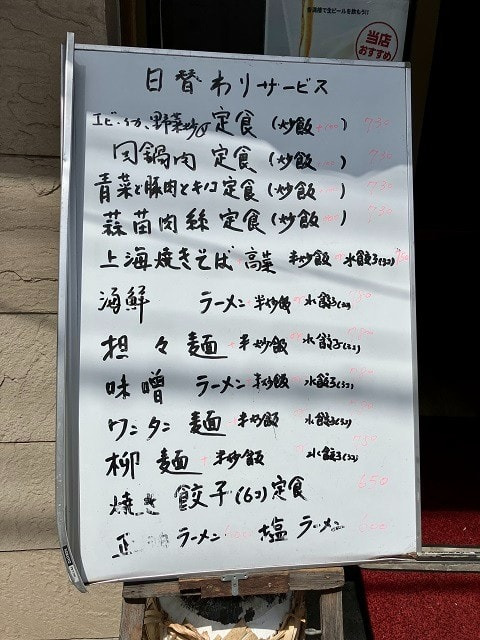 生ビールを飲もう!!
当店
おすすめ
日替わりサービス
エビ、イカ、野菜炒め 定食 (炒飯 ) 730
回鍋肉 定食 (炒飯 ) 730
青菜と豚肉とキノコ定食 (炒飯 ) 730
蒜苗肉絲 定食 (炒飯 ) 730
上海焼きそば 高菜 半炒飯 水餃子(3コ)
海鮮 ラーメン 半炒飯 水餃子(3コ)
担々麺 + 半炒飯 水餃子(3コ)
味噌 ラーメン 半炒飯 水餃子(3コ)
ワンタン麺 + 半炒飯 水餃子(3コ)
柳麺 + 半炒飯 水餃子(3コ) 730
焼き 餃子(6コ)定食 650
正 ラーメン 600 塩ラーメン 600